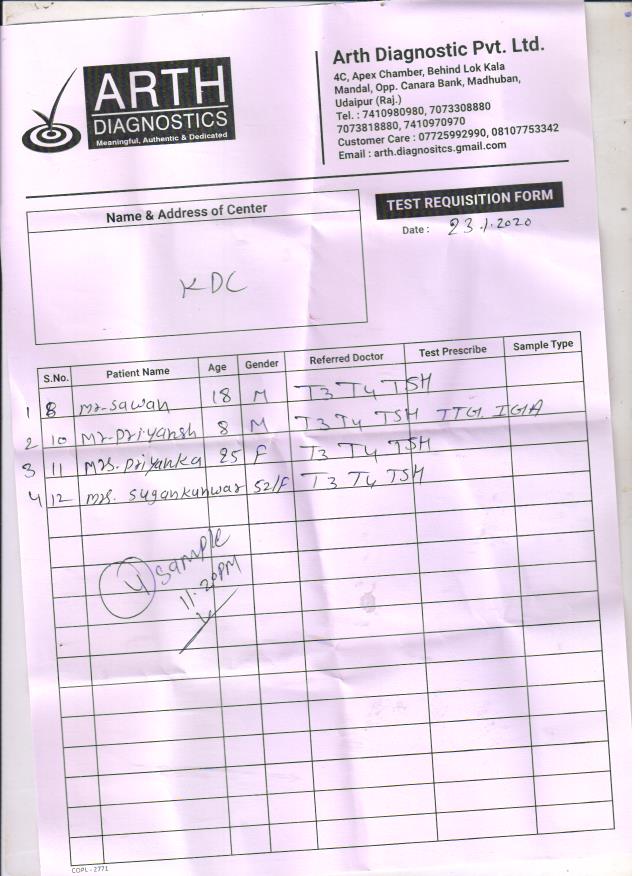 ARTH
DIAGNOSTICS
Meaningful, Authentic & Dedicated
Arth Diagnostic Pvt. Ltd.
4C, Apex Chamber, Behind Lok Kala
Mandal, Opp. Canara Bank, Madhuban,
Udaipur (Raj.)
Tel. : 7410980980, 7073308880
7073818880, 7410970970
Customer Care : 07725992990, 08107753342
Email : arth.diagnositcs.gmail.com
Name & Address of Center
KDC
TEST REQUISITION FORM
Date : 23.1.2020
S.No. Patient Name Age Gender Referred Doctor Test Prescribe Sample Type
1 8 Mr. Sawan 18 M T3 T4 TSH
2 10 Mr. Priyansh 8 M T3 T4 TSH TTG. IGA
3 11 Mrs. Priyanka 25 F T3 T4 TSH
4 12 Mrs. Sugankunwar 52/F T3 T4 TSH
4 Sample
11:20PM
COPL - 2771